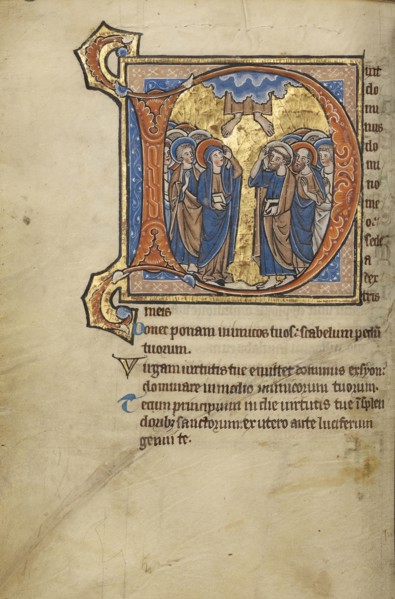 Dixit
do
mi
nus
do
mi
no
me
o:
sede
a
dex
tris
meis
Donec ponam inimicos tuos: scabelum pedū
tuorum.
Virgam uirtutis tue emittet dominus ex syon:
dominare in medio inimicorum tuorum.
Tecum principium in die uirtutis tue ī splen
doribꝫ sanctorum: ex utero ante luciferum
genui te.